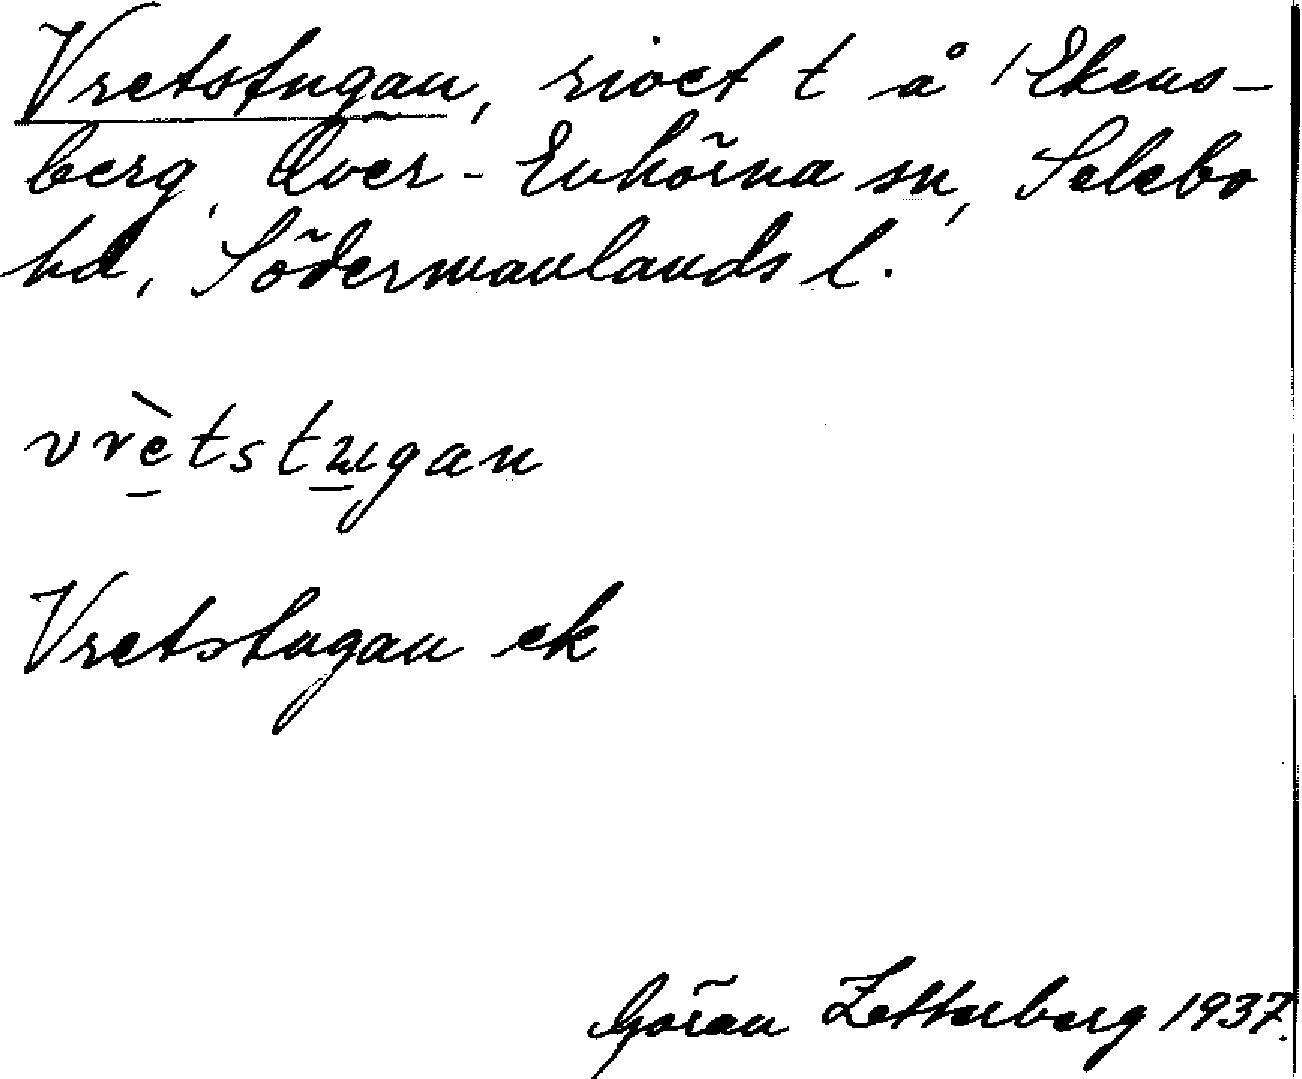 Vretstugan, rivet t å 1 Ekens-
berg, Över-Enhörna sn, Selebo
hd, Södermanlands l.
vrètstugan
Vretstugan ek
Göran Zetterberg 1937.